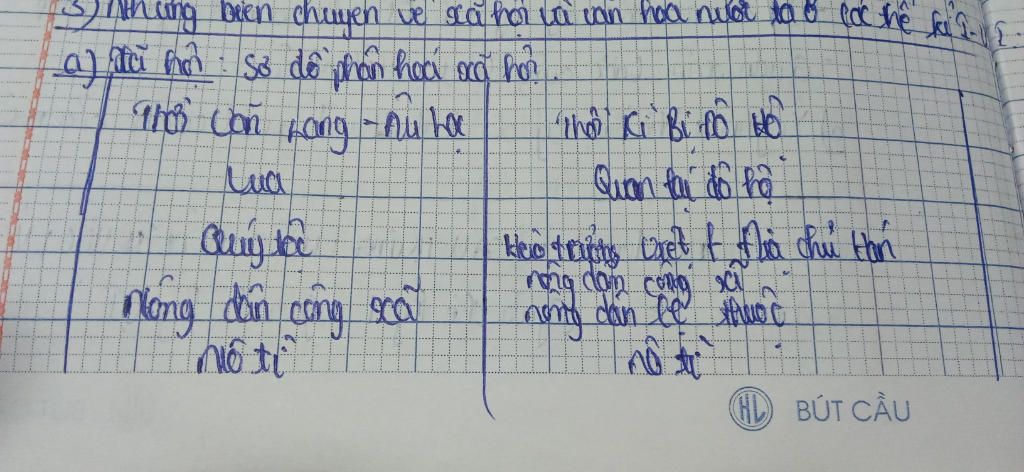 3) Những biến chuyển về xã hội và văn hoá nước ta ở các thế kỉ I-
a) Xã hội : Sơ đồ phân hoá xã hội.
Thời Văn Lang - Âu Lạc
Vua
Quý tộc
Nông dân công xã
Nô tì
Thời Kì Bị Đô Hộ
Quan lại đô hộ
Hào trưởng Việt + Địa chủ Hán
nông dân công xã
nông dân lệ thuộc
nô tì
HL BÚT CẦU